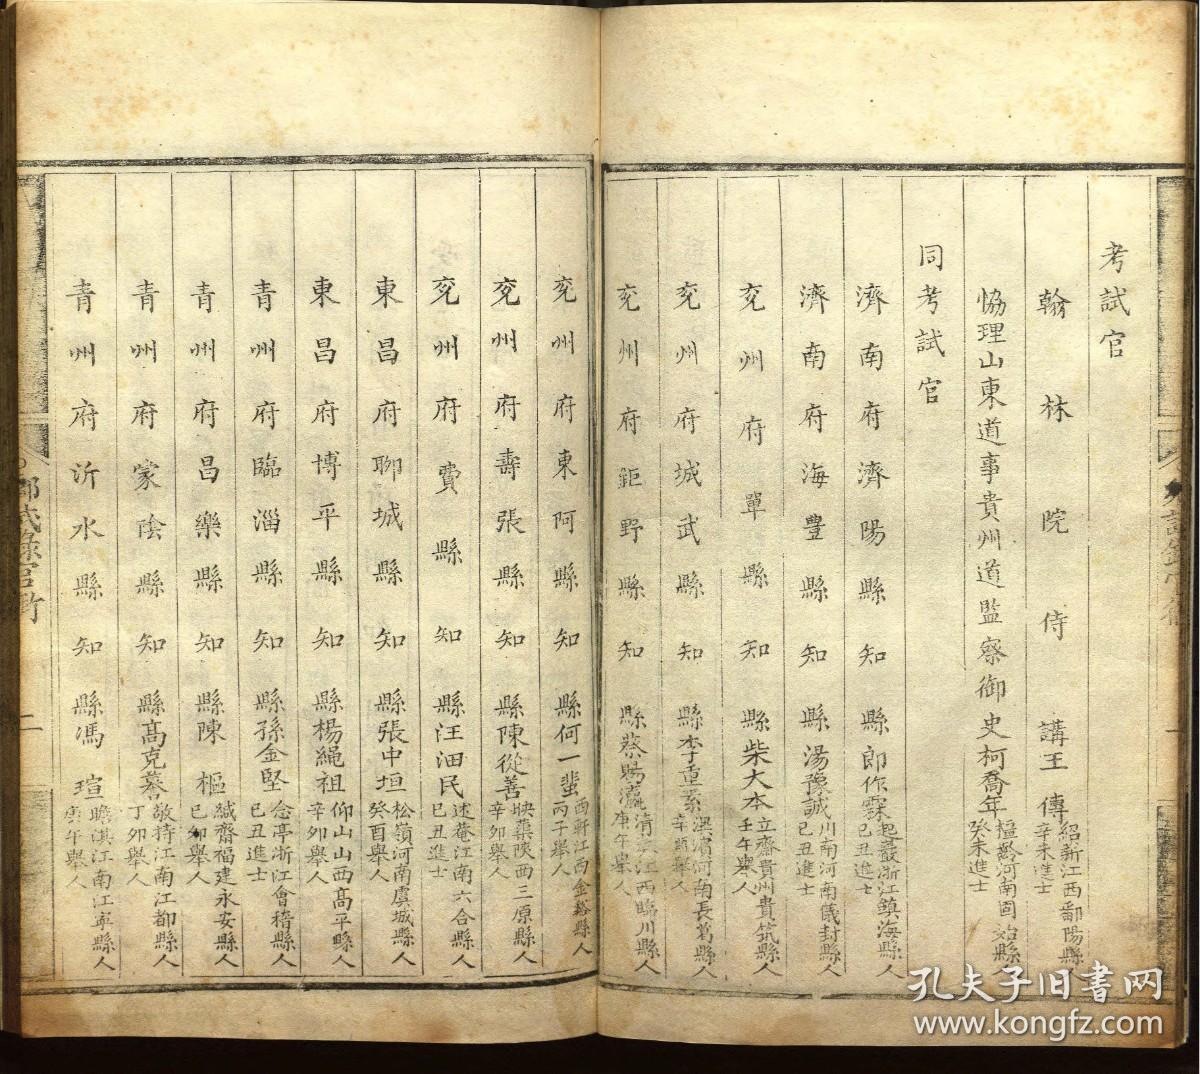 考試官
翰林院侍講王傳紹新江西鄱陽縣人辛未進士
協理山東道事貴州道監察御史柯喬年橿齡河南固始縣癸未進士
同考試官
濟南府濟陽縣知縣郎作霖起蕞浙江鎮海縣人己丑進士
濟南府海豐縣知縣湯豫誠川南河南儀封縣人己丑進士
兗州府單縣知縣柴大本立齋貴州貴筑縣人壬午舉人
兗州府城武縣知縣李重素濱河南長葛縣人舉人
兗州府鉅野縣知縣蔡賜瀛清江西臨川縣人庚午舉人
兗州府東阿縣知縣何一蜚西軒江西金谿縣人丙子舉人
兗州府壽張縣知縣陳從善映葉陝西三原縣人辛卯舉人
兗州府費縣知縣汪洄民述菴江南六合縣人己丑進士
東昌府聊城縣知縣張中垣松嶺河南虞城縣人癸酉舉人
東昌府博平縣知縣楊繩祖仰山山西高平縣人辛卯舉人
青州府臨淄縣知縣孫金堅念亭浙江會稽縣人己丑進士
青州府昌樂縣知縣陳樞緘齋福建永安縣人己卯舉人
青州府蒙陰縣知縣髙克蕃敬持江南江都縣人丁卯舉人
青州府沂水縣知縣馮瑄瞻淇江南江寧縣人庚午舉人
試錄官銜
一
二
孔夫子旧书网
www.kongfz.com